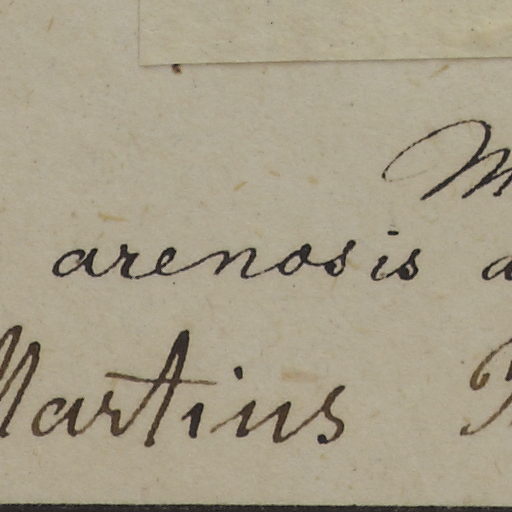 arenosis
Martius